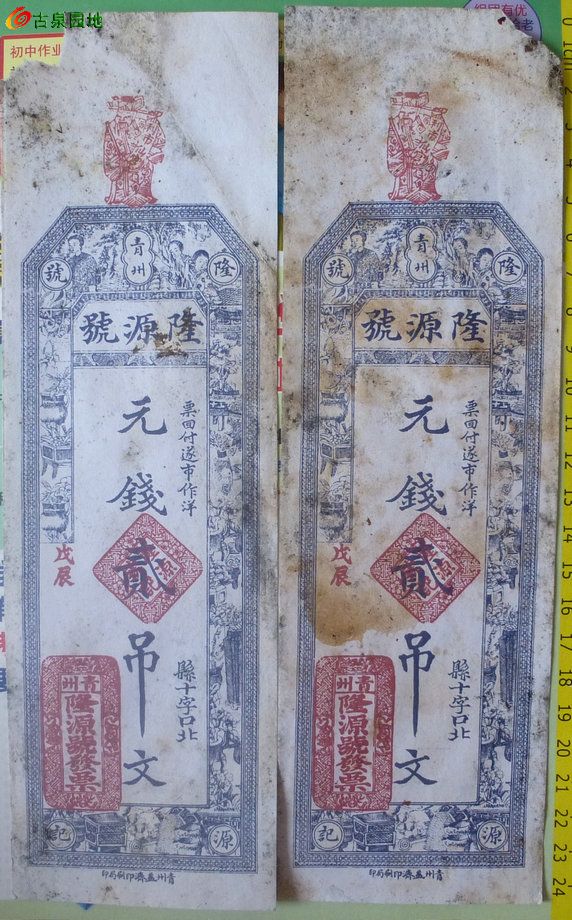 古泉园地
初中作业
青州
隆
號
隆源號
元錢貳吊文
票回付遂市作洋
戊辰
縣十字口北
青州
隆源號發票
源
記
青州益濟印刷局印
青州
隆
號
隆源號
元錢貳吊文
票回付遂市作洋
戊辰
縣十字口北
青州
隆源號發票
源
記
青州益濟印刷局印
0 1cm 2 3 4 5 6 7 8 9 10 11 12 13 14 15 16 17 18 19 20 21 22 23 24